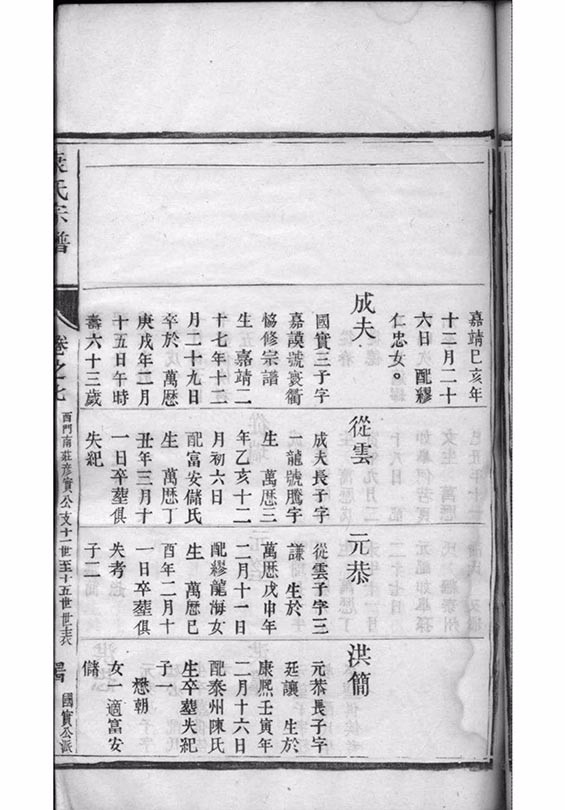 嘉靖己亥年
十二月二十
六日 配繆
仁忠女。
成夫
國實三子字
嘉謨號袞衢
恊修宗譜
生 嘉靖二
十七年十二
月二十九日
卒於 萬歷
庚戌年三月
十五日午時
壽六十三歲
從雲
成夫長子字
一龍號騰宇
生 萬歷三
年乙亥十二
月初六日
配富安儲氏
生 萬歷丁
丑年三月十
一日卒塟俱
失紀
元恭
從雲子字三
謙 生於
萬歷戊申年
二月十一日
配繆龍海女
生 萬歷己
酉年二月十
一日卒塟俱
失考
子二
洪簡
元恭長子字
廷讓 生於
康熙壬寅年
二月十六日
配泰州陳氏
生卒塟失紀
子一
懋朝
女一適富安
儲
袁氏宗譜
卷之七
西門南莊彦實公支十一世至十五世世表
國實公派